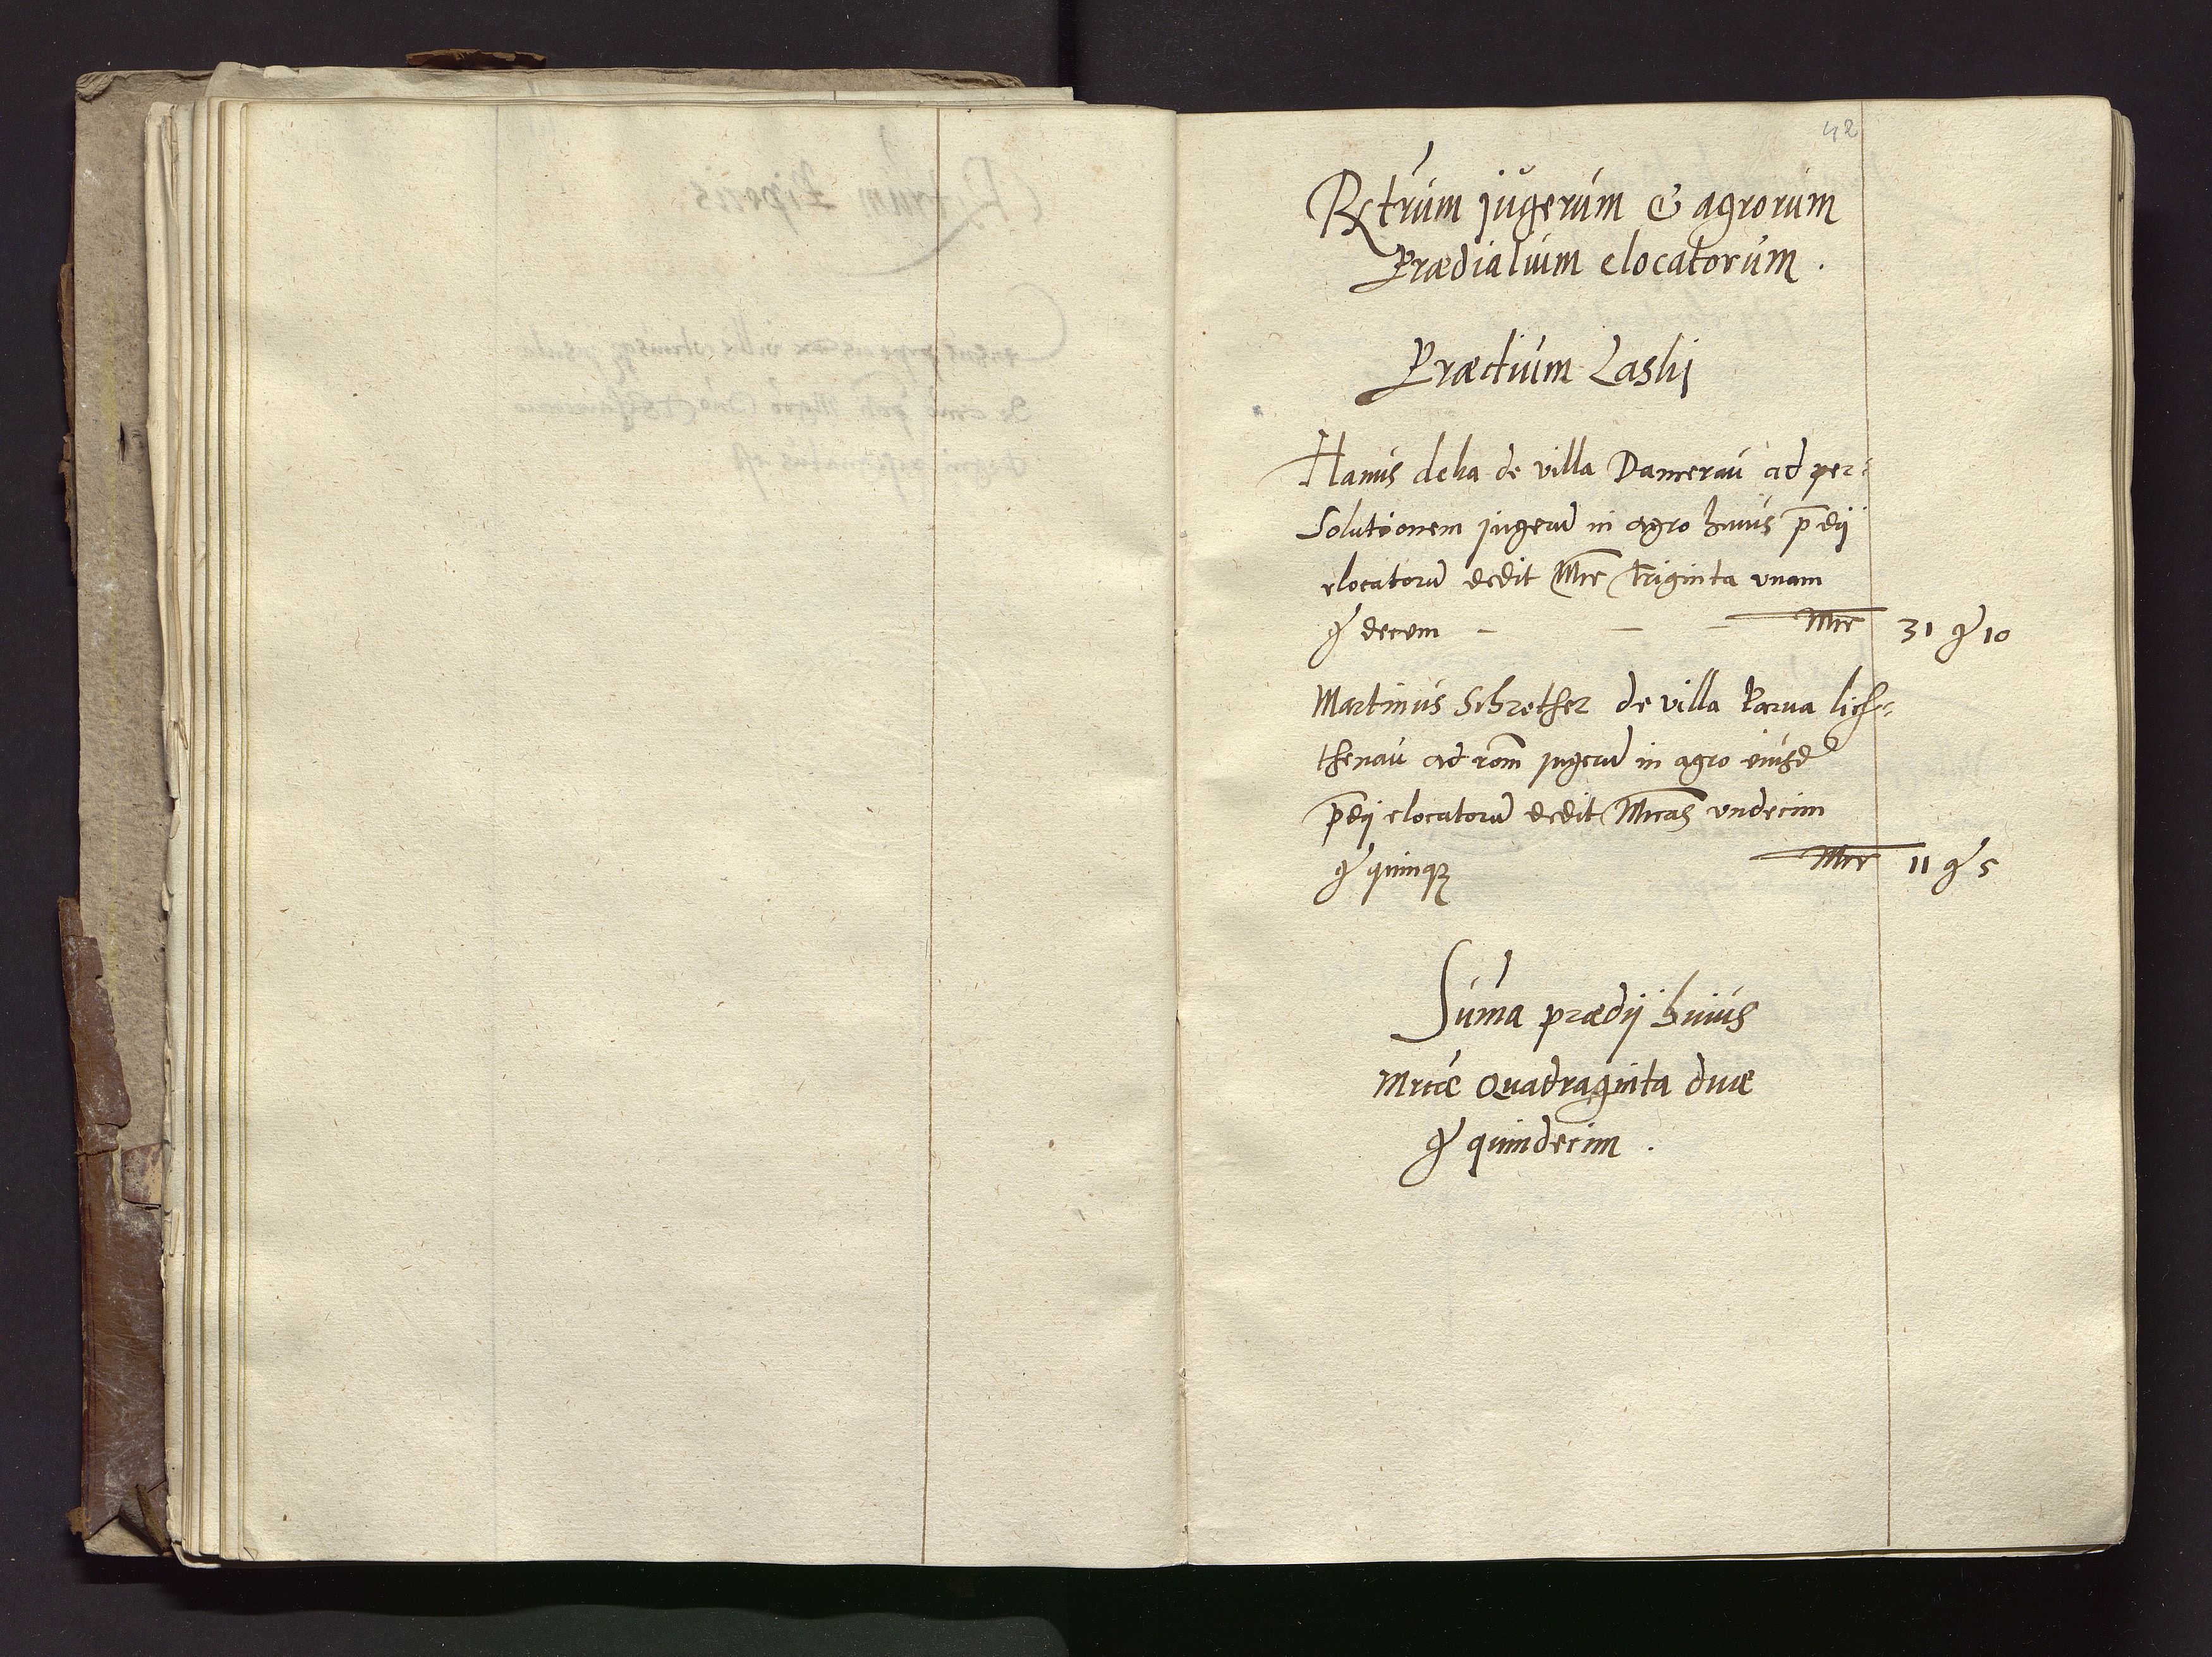 42
Rętrum jugerum & agrorum
Prædialium elocatorum.
Prædium Laski
Hanus deka de villa Damerau ad per:
Solutionem jugerū in agro huius p̄dij
elocatorū dedit Mrc triginta vnam
gr decem - - - Mrc 31 gr 10
Martinus Schrether de villa Parua lich=
thenau ad rōm jugerū in agro eiusd
p̄dij elocatorū dedit Mrcas vndecim
gr quinqȝ Mrc 11 gr 5
Suma prædij huius
Mrcæ Quadraginta duæ
gr quindecim.